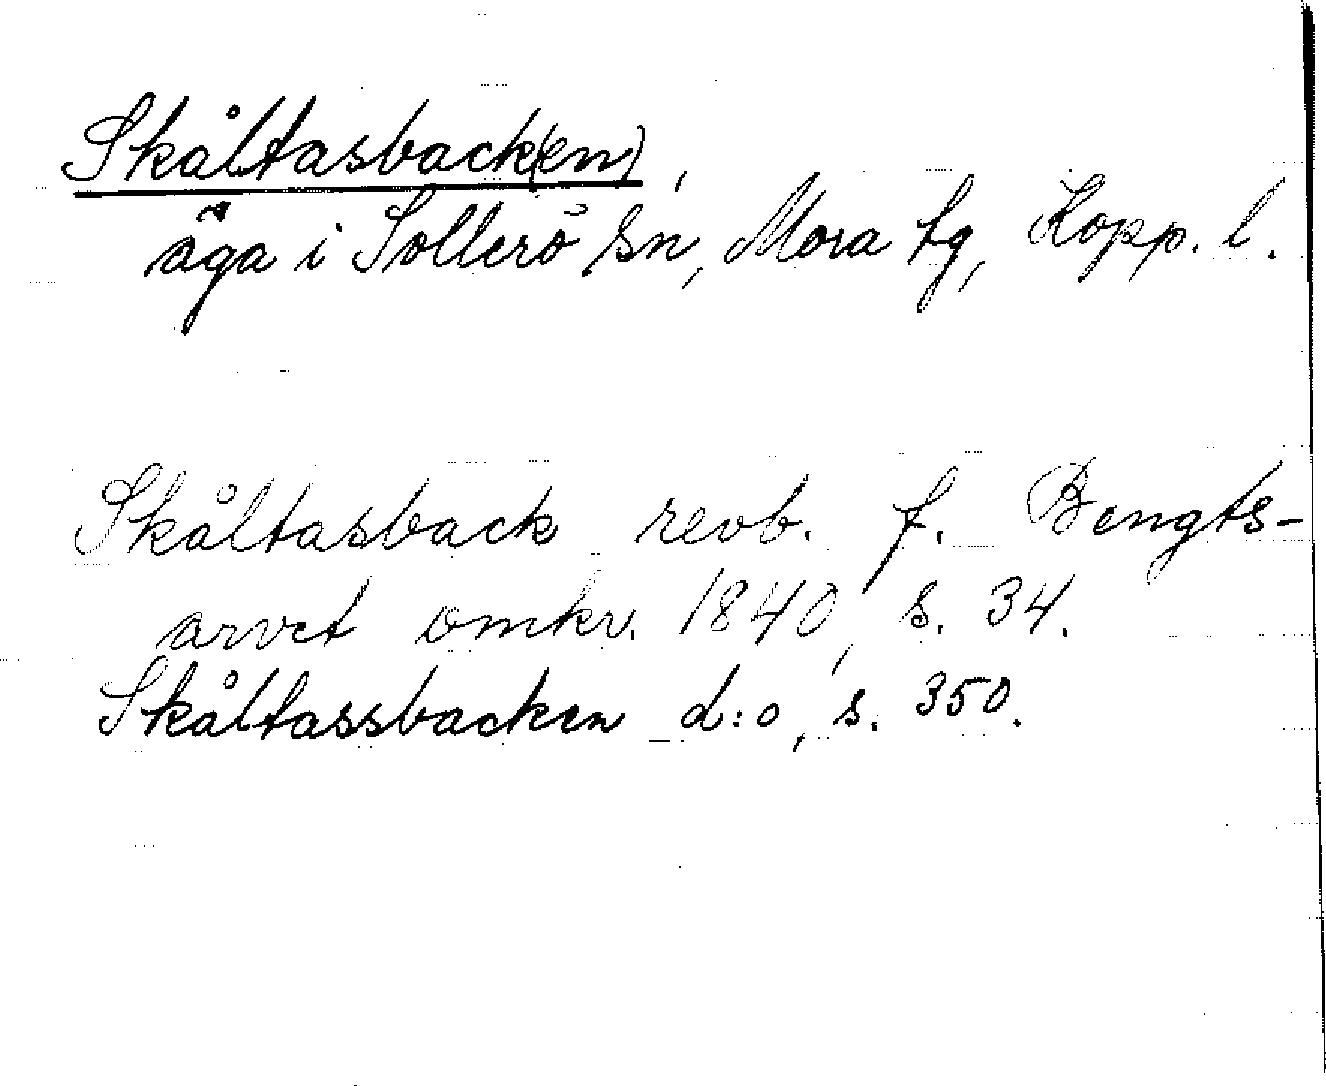 Skåltasback(en),
äga i Sollerö sn, Mora tg, Kopp. l.
Skåltasback revb. f. Bengts-
arvet omkr. 1840, s. 34.
Skåltassbacken d:o, s. 350.